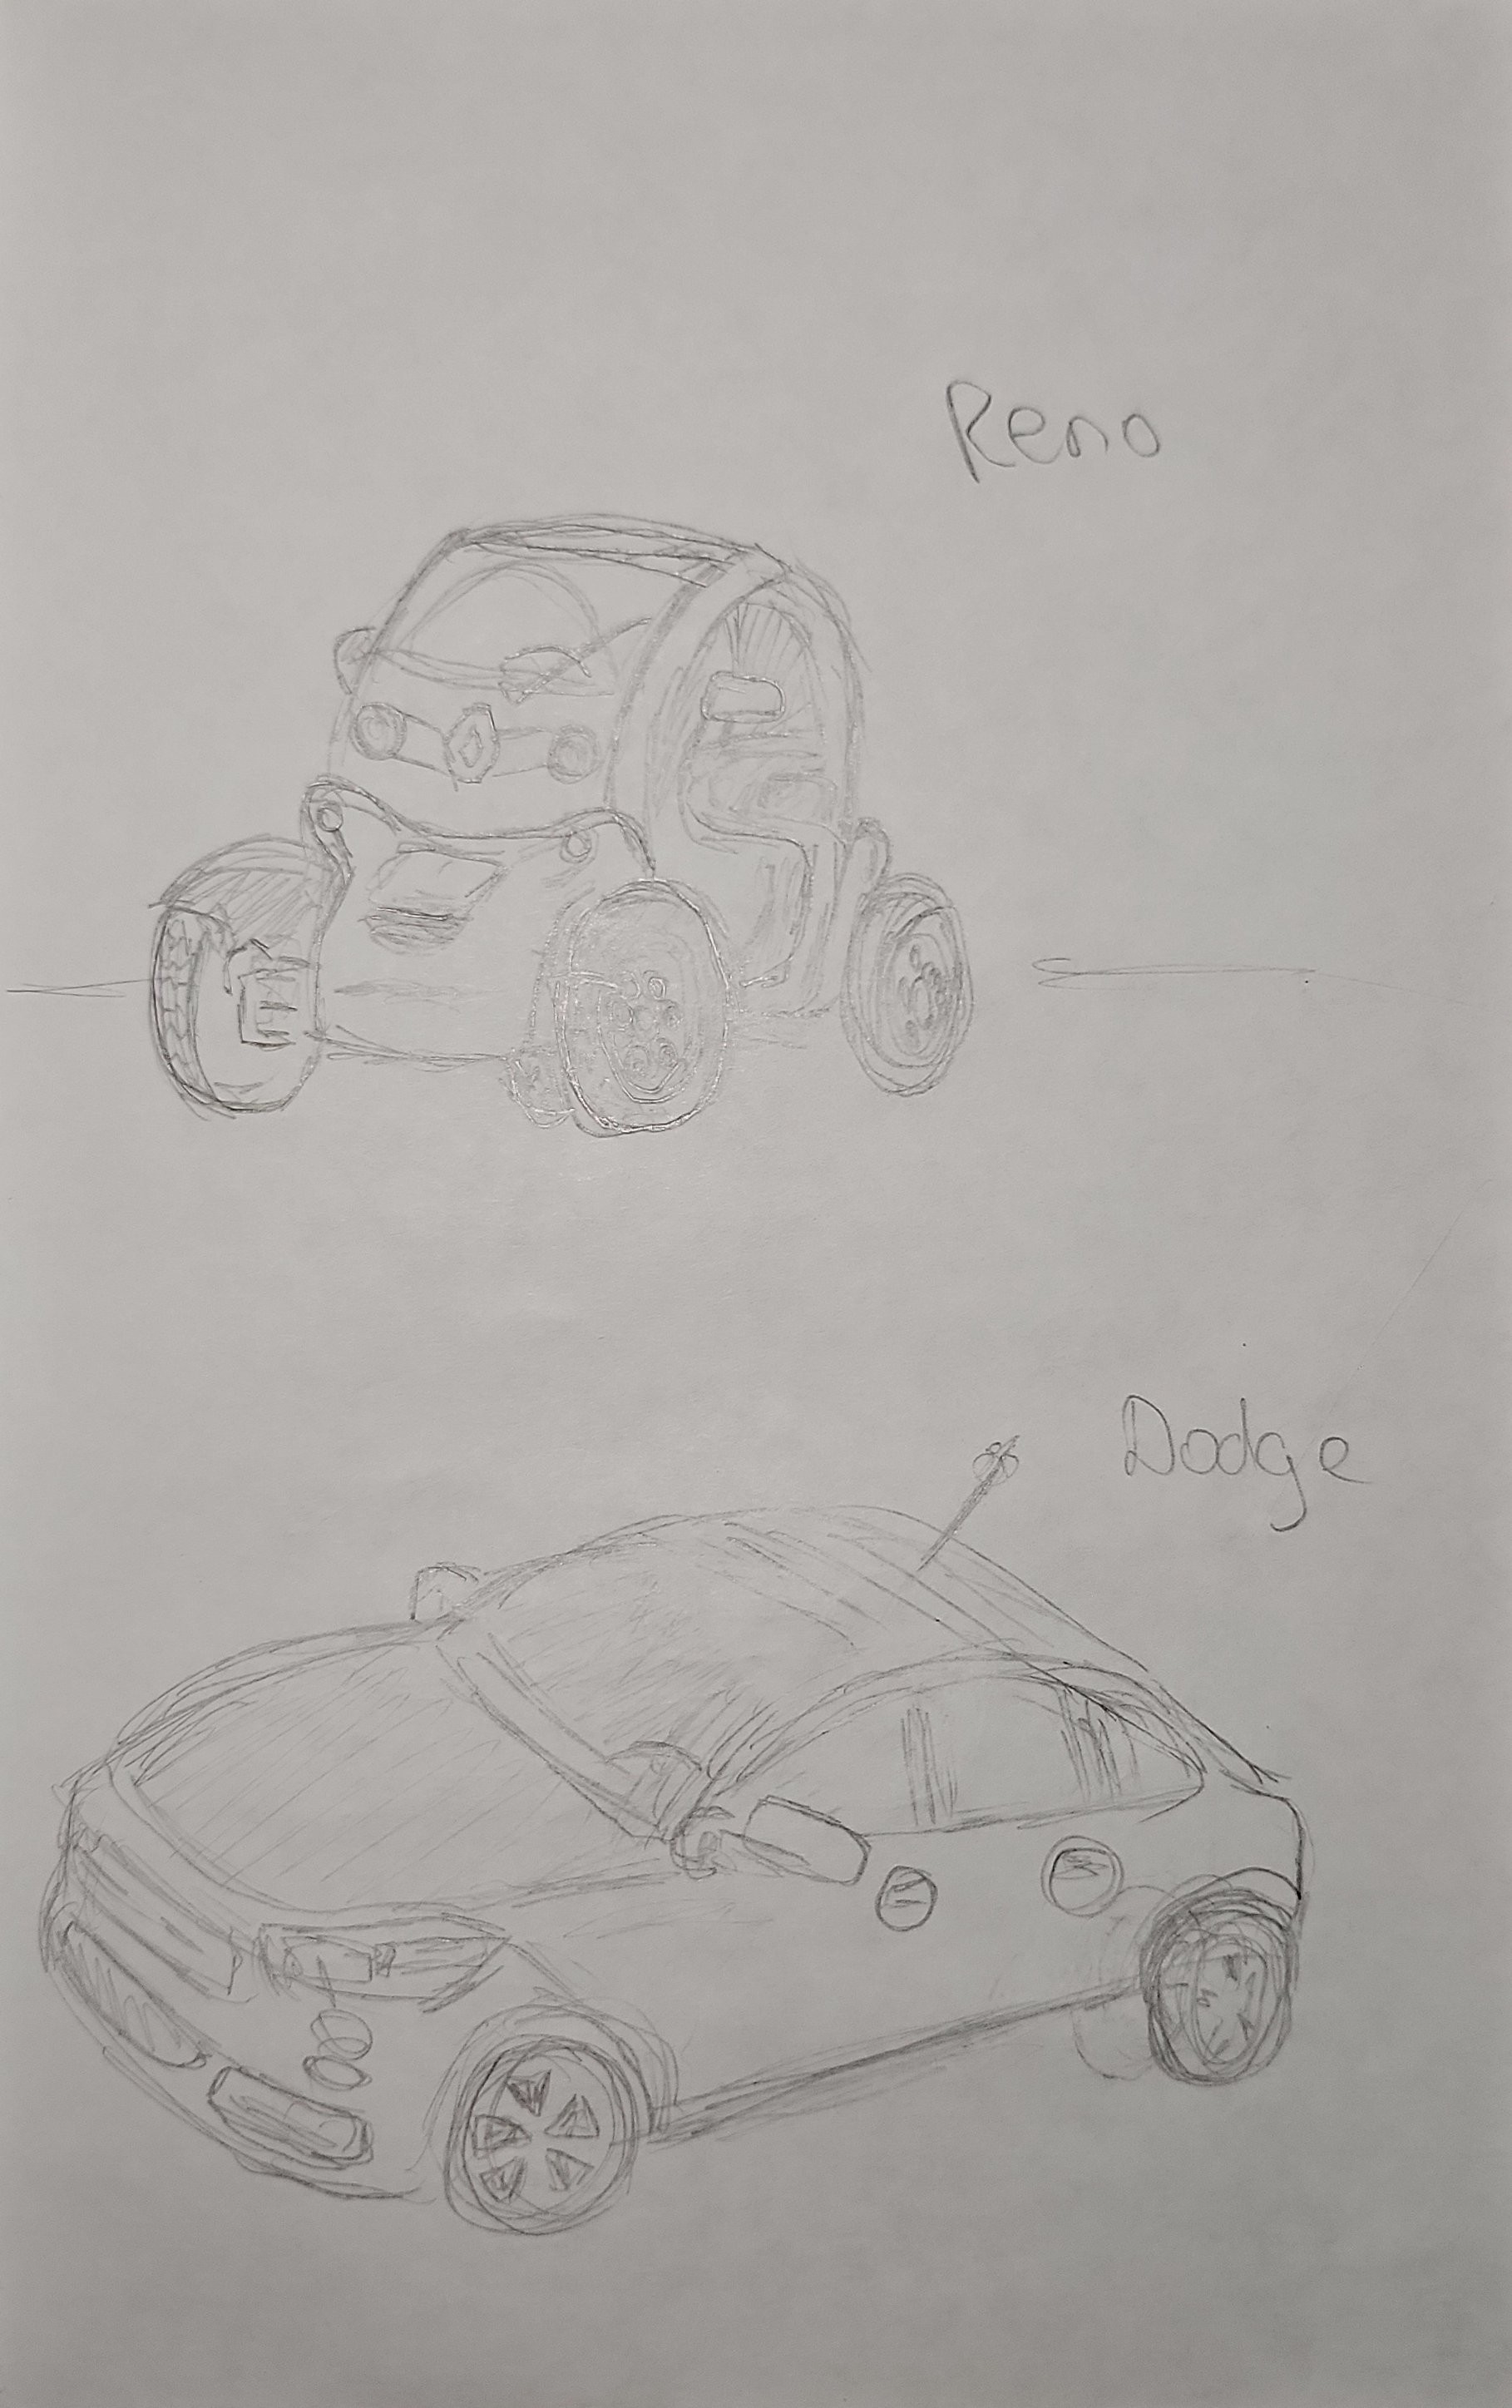 Reno
Dodge